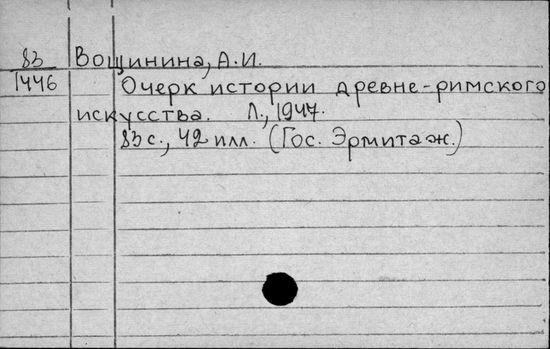 83 Вощинина, А.И.
1446 Очерк истории древне-римского
искусства. Л., 1947.
83 с., 42 илл. (Гос. Эрмитаж.)